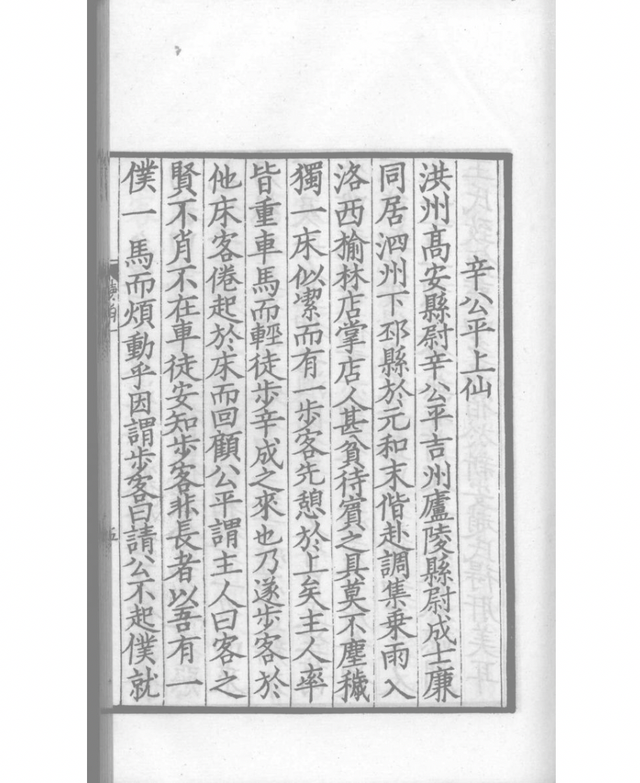 辛公平上仙
洪州髙安縣尉辛公平吉州廬陵縣尉成士廉
同居泗州下邳縣於元和末偕赴調集乗雨入
洛西榆林店掌店人甚貧待賔之具莫不塵穢
獨一床似潔而有一步客先憩於上矣主人率
皆重車馬而輕徒步辛成之來也乃遂步客於
他床客倦起於床而回顧公平謂主人曰客之
賢不肖不在車徒安知步客非長者以吾有一
僕一馬而煩動乎因謂步客曰請公不起僕就
五